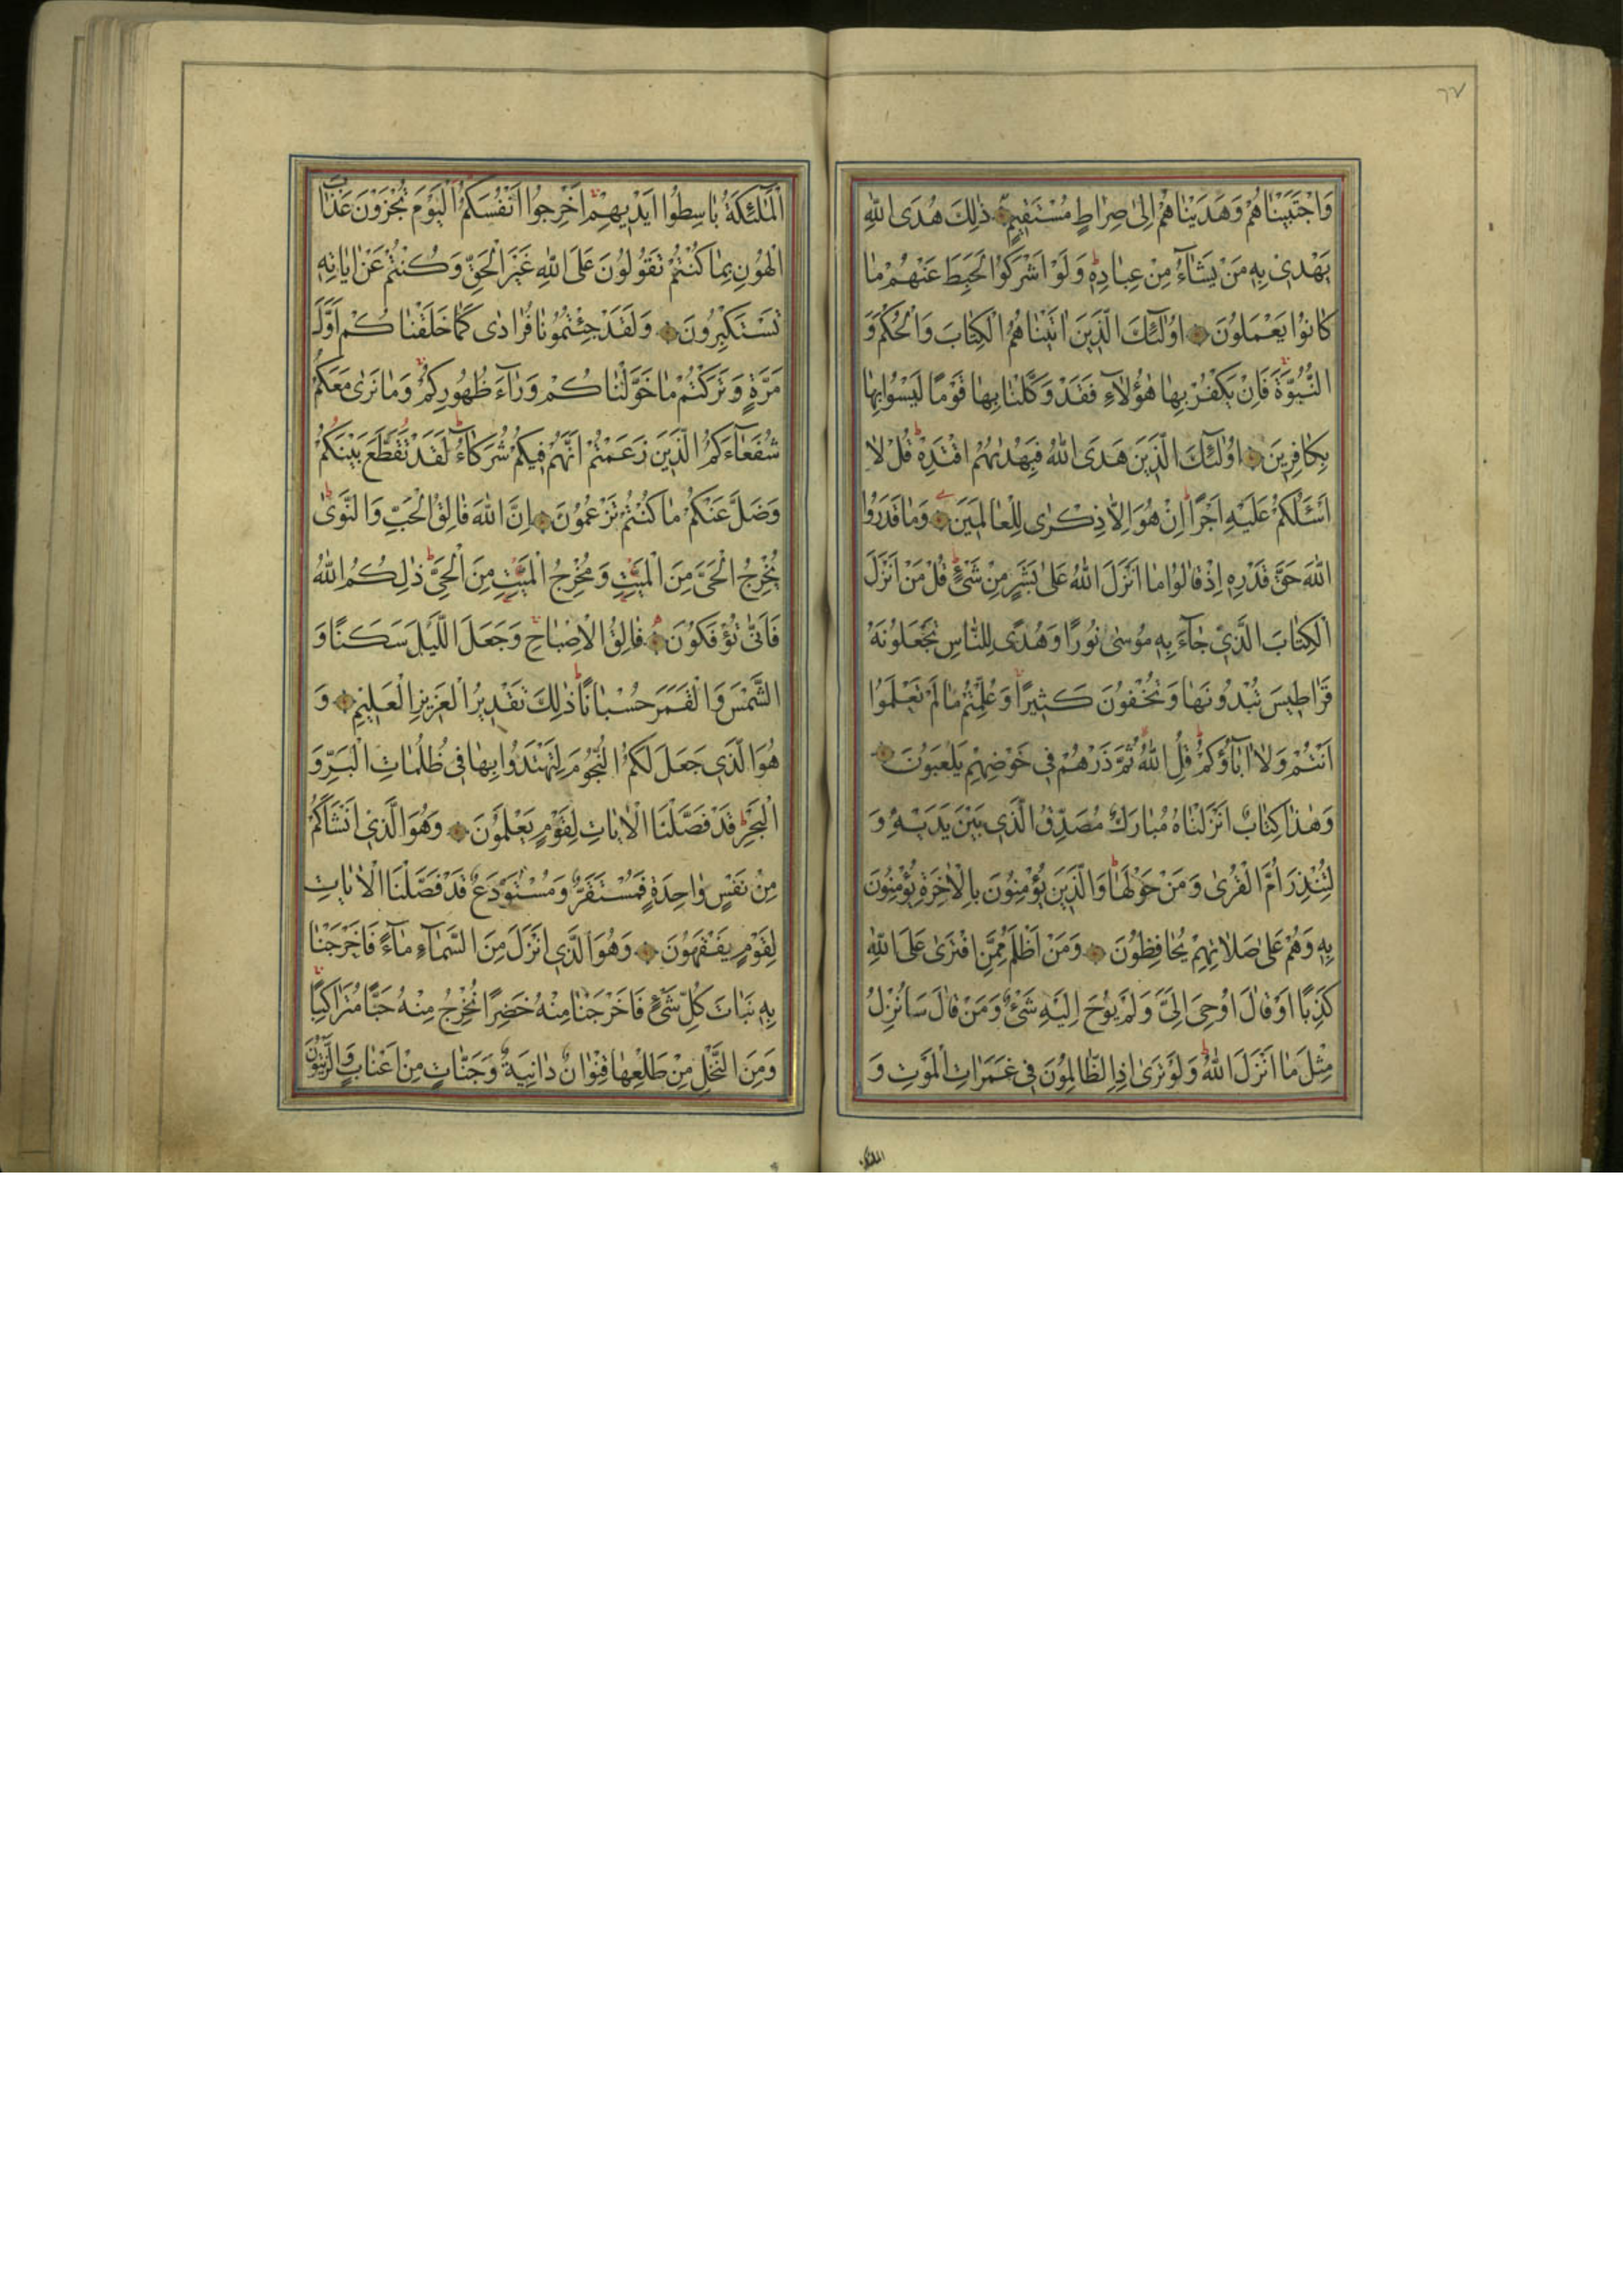 ٦٧
وَاجْتَبَيْنَاهُمْ وَهَدَيْنَاهُمْ اِلىٰ صِرَاطٍ مُسْتَقيمٍ ذٰلِكَ هُدَى اللّٰهِ
يَهْدى بِه مَنْ يَشَاۤءُ مِنْ عِبَادِهِ وَلَوْ اَشْرَكُوا لَحَبِطَ عَنْهُمْ مَا
كَانُوا يَعْمَلُونَ اُولٰۤئِكَ الَّذينَ اٰتَيْنَاهُمُ الْكِتَابَ وَالْحُكْمَ وَ
النُّبُوَّةَ فَاِنْ يَكْفُرْ بِهَا هٰۤؤُلَاۤءِ فَقَدْ وَكَّلْنَا بِهَا قَوْمًا لَيْسُوا بِهَا
بِكَافِرينَ اُولٰۤئِكَ الَّذينَ هَدَى اللّٰهُ فَبِهُدٰيهُمُ اقْتَدِهْ قُلْ لَا
اَسْئَلُكُمْ عَلَيْهِ اَجْرًا اِنْ هُوَ اِلَّا ذِكْرٰى لِلْعَالَمينَ وَمَا قَدَرُوا
اللّٰهَ حَقَّ قَدْرِه اِذْ قَالُوا مَا اَنْزَلَ اللّٰهُ عَلىٰ بَشَرٍ مِنْ شَىْءٍ قُلْ مَنْ اَنْزَلَ
الْكِتَابَ الَّذى جَاۤءَ بِه مُوسىٰ نُورًا وَهُدًى لِلنَّاسِ تَجْعَلُونَهُ
قَرَاطيسَ تُبْدُونَهَا وَتُخْفُونَ كَثيرًا وَعُلِّمْتُمْ مَا لَمْ تَعْلَمُوا
اَنْتُمْ وَلَا اٰبَاۤؤُكُمْ قُلِ اللّٰهُ ثُمَّ ذَرْهُمْ فى خَوْضِهِمْ يَلْعَبُونَ
وَهٰذَا كِتَابٌ اَنْزَلْنَاهُ مُبَارَكٌ مُصَدِّقُ الَّذى بَيْنَ يَدَيْهِ وَ
لِتُنْذِرَ اُمَّ الْقُرٰى وَمَنْ حَوْلَهَا وَالَّذينَ يُؤْمِنُونَ بِالْاٰخِرَةِ يُؤْمِنُونَ
بِه وَهُمْ عَلىٰ صَلَاتِهِمْ يُحَافِظُونَ وَمَنْ اَظْلَمُ مِمَّنِ افْتَرٰى عَلَى اللّٰهِ
كَذِبًا اَوْ قَالَ اُوحِىَ اِلَىَّ وَلَمْ يُوحَ اِلَيْهِ شَىْءٌ وَمَنْ قَالَ سَاُنْزِلُ
مِثْلَ مَا اَنْزَلَ اللّٰهُ وَلَوْ تَرٰى اِذِ الظَّالِمُونَ فى غَمَرَاتِ الْمَوْتِ وَ
الملائكة
الْمَلٰۤئِكَةُ بَاسِطُوا اَيْديهِمْ اَخْرِجُوا اَنْفُسَكُمُ الْيَوْمَ تُجْزَوْنَ عَذَابَ
الْهُونِ بِمَا كُنْتُمْ تَقُولُونَ عَلَى اللّٰهِ غَيْرَ الْحَقِّ وَكُنْتُمْ عَنْ اٰيَاتِه
تَسْتَكْبِرُونَ وَلَقَدْ جِئْتُمُونَا فُرَادٰى كَمَا خَلَقْنَاكُمْ اَوَّلَ
مَرَّةٍ وَتَرَكْتُمْ مَا خَوَّلْنَاكُمْ وَرَاۤءَ ظُهُورِكُمْ وَمَا نَرٰى مَعَكُمْ
شُفَعَاۤءَكُمُ الَّذينَ زَعَمْتُمْ اَنَّهُمْ فيكُمْ شُرَكَاۤءُ لَقَدْ تَقَطَّعَ بَيْنَكُمْ
وَضَلَّ عَنْكُمْ مَا كُنْتُمْ تَزْعُمُونَ اِنَّ اللّٰهَ فَالِقُ الْحَبِّ وَالنَّوٰى
يُخْرِجُ الْحَىَّ مِنَ الْمَيِّتِ وَمُخْرِجُ الْمَيِّتِ مِنَ الْحَىِّ ذٰلِكُمُ اللّٰهُ
فَاَنّٰى تُؤْفَكُونَ فَالِقُ الْاِصْبَاحِ وَجَعَلَ اللَّيْلَ سَكَنًا وَ
الشَّمْسَ وَالْقَمَرَ حُسْبَانًا ذٰلِكَ تَقْديرُ الْعَزيزِ الْعَليمِ وَ
هُوَ الَّذى جَعَلَ لَكُمُ النُّجُومَ لِتَهْتَدُوا بِهَا فى ظُلُمَاتِ الْبَرِّ وَ
الْبَحْرِ قَدْ فَصَّلْنَا الْاٰيَاتِ لِقَوْمٍ يَعْلَمُونَ وَهُوَ الَّذى اَنْشَاَكُمْ
مِنْ نَفْسٍ وَاحِدَةٍ فَمُسْتَقَرٌّ وَمُسْتَوْدَعٌ قَدْ فَصَّلْنَا الْاٰيَاتِ
لِقَوْمٍ يَفْقَهُونَ وَهُوَ الَّذى اَنْزَلَ مِنَ السَّمَاۤءِ مَاۤءً فَاَخْرَجْنَا
بِه نَبَاتَ كُلِّ شَىْءٍ فَاَخْرَجْنَا مِنْهُ خَضِرًا نُخْرِجُ مِنْهُ حَبًّا مُتَرَاكِبًا
وَمِنَ النَّخْلِ مِنْ طَلْعِهَا قِنْوَانٌ دَانِيَةٌ وَجَنَّاتٍ مِنْ اَعْنَابٍ وَالزَّيْتُونَ